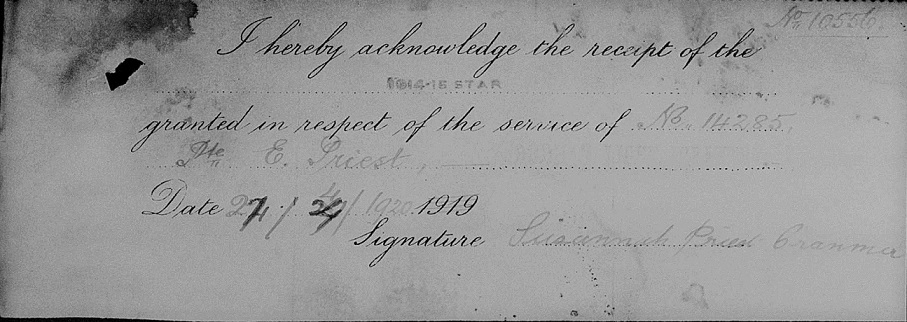 No 10556
I hereby acknowledge the receipt of the
1914-15 STAR
granted in respect of the service of No. 14285,
Pte E. Priest,
Date 27/4/1920 1919
Signature Susannah Priest Cranmer